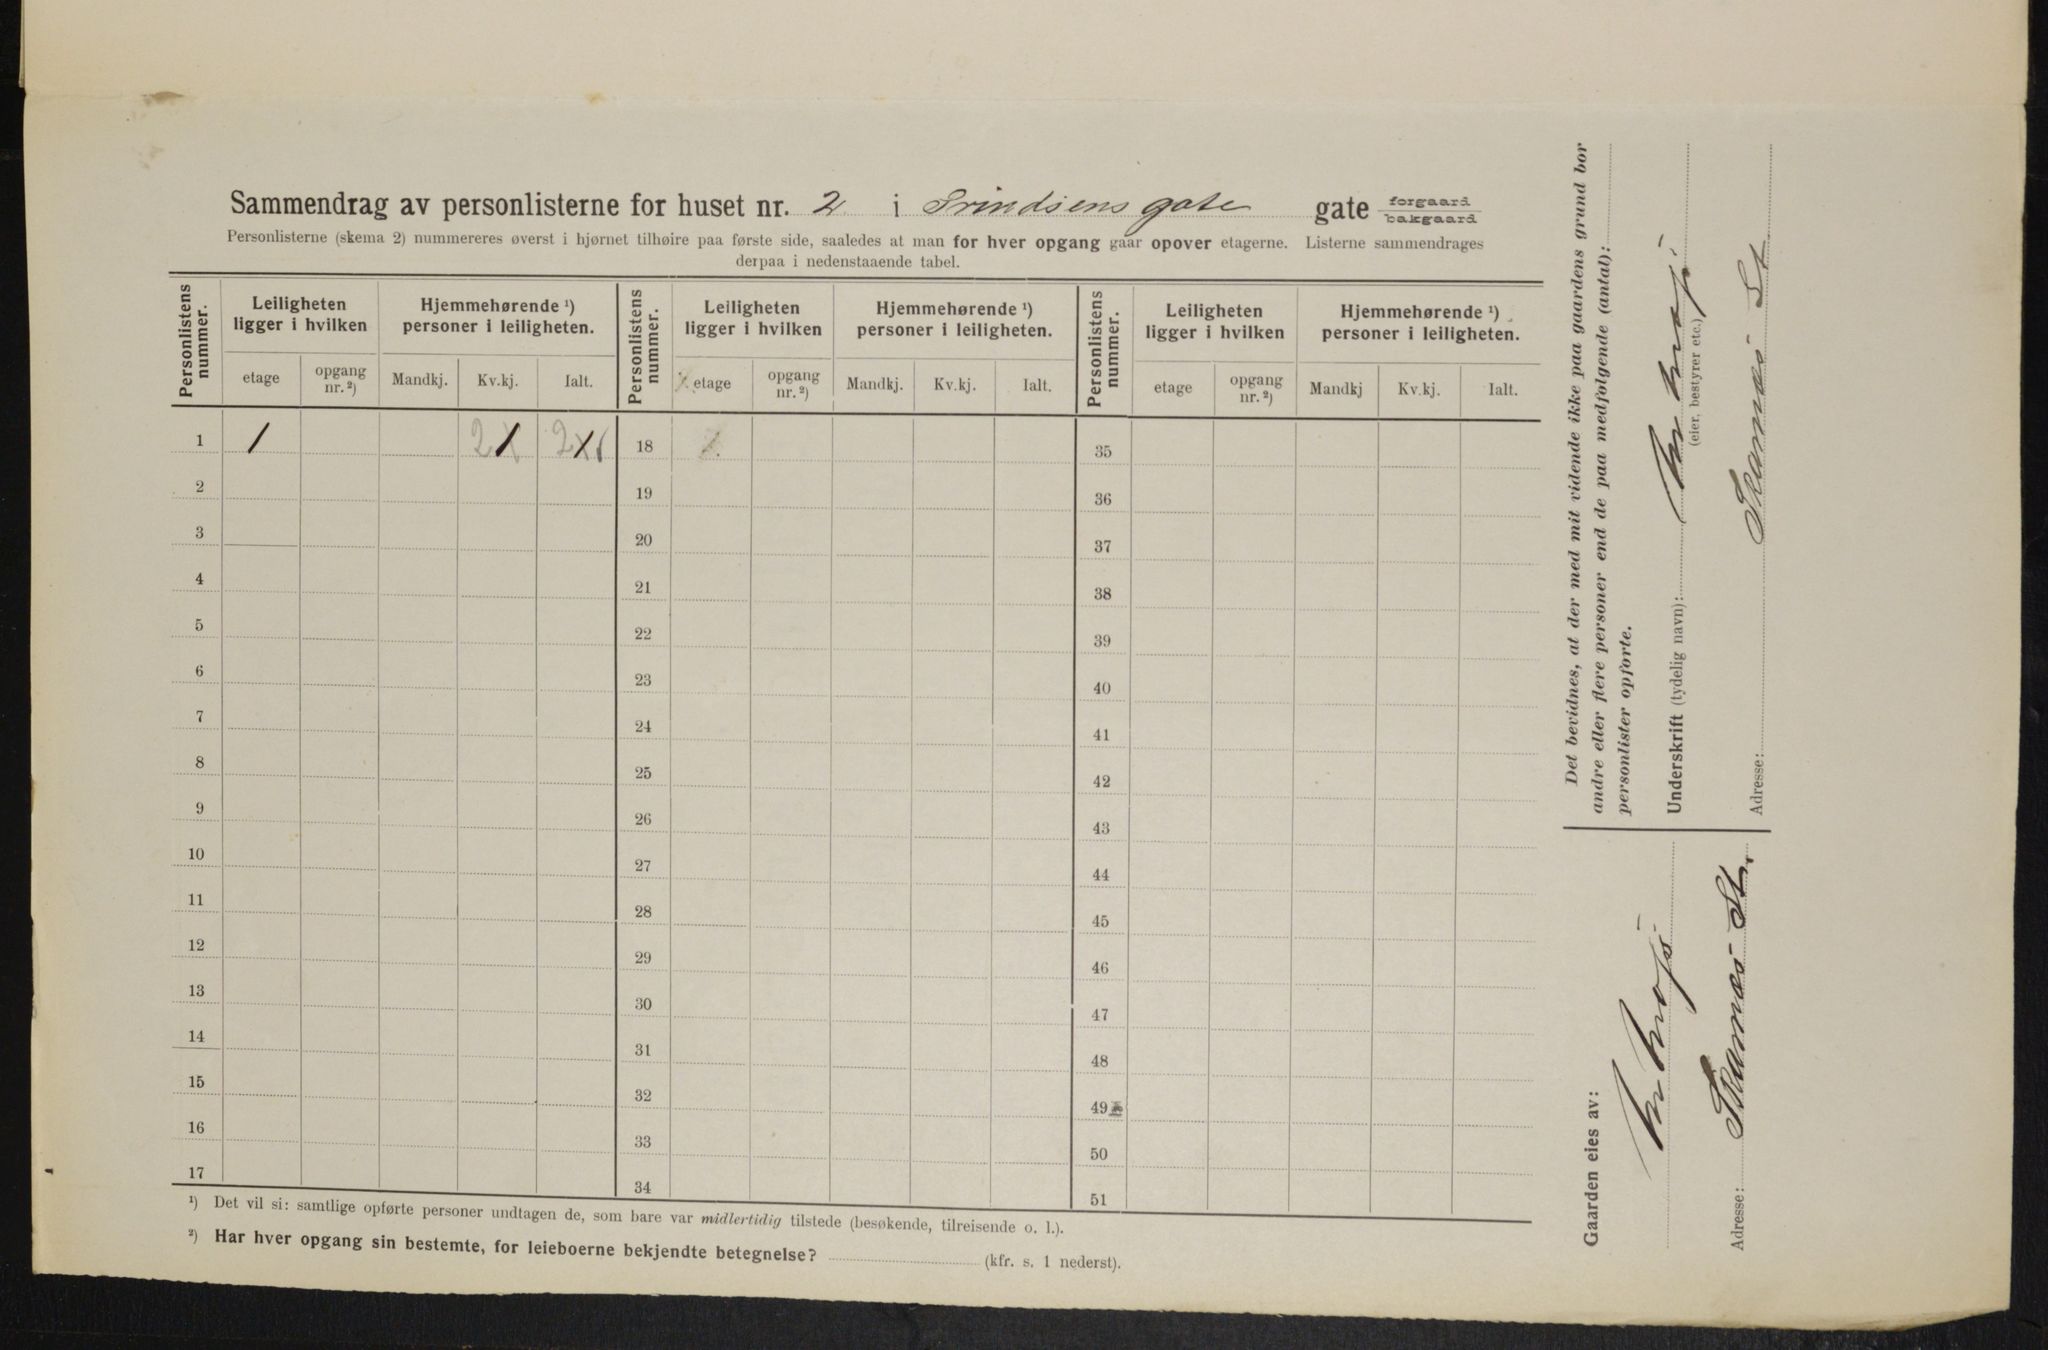 Sammendrag av personlisterne for huset nr. 2 i Frindsens gate gate forgaard bakgaard
Personlisterne (skema 2) nummereres øverst i hjørnet tilhøire paa første side, saaledes at man for hver opgang gaar opover etagerne. Listerne sammendrages
derpaa i nedenstaaende tabel.
Personlistens nummer. Leiligheten ligger i hvilken Hjemmehørende ¹) personer i leiligheten. Personlistens nummer. Leiligheten ligger i hvilken Hjemmehørende ¹) personer i leiligheten. Personlistens nummer. Leiligheten ligger i hvilken Hjemmehørende ¹) personer i leiligheten.
etage opgang nr. ²) Mandkj. Kv.kj. Ialt. etage opgang nr. ²) Mandkj. Kv.kj. Ialt. etage opgang nr. ²) Mandkj Kv.kj. Ialt.
1 1 2 2 18 35
2 19 36
3 20 37
4 21 38
5 22 39
6 23 40
7 24 41
8 25 42
9 26 43
10 27 44
11 28 45
12 29 46
13 30 47
14 31 48
15 32 49
16 33 50
17 34 51
¹) Det vil si: samtlige opførte personer undtagen de, som bare var midlertidig tilstede (besøkende, tilreisende o. l.).
²) Har hver opgang sin bestemte, for leieboerne bekjendte betegnelse? (kfr. s. 1 nederst).
Det bevidnes, at der med mit vidende ikke paa gaardens grund bor
andre eller flere personer end de paa medfølgende (antal):
personlister opførte.
Underskrift (tydelig navn):
(eier, bestyrer etc.)
Adresse: St
Gaarden eies av:
Adresse: St.